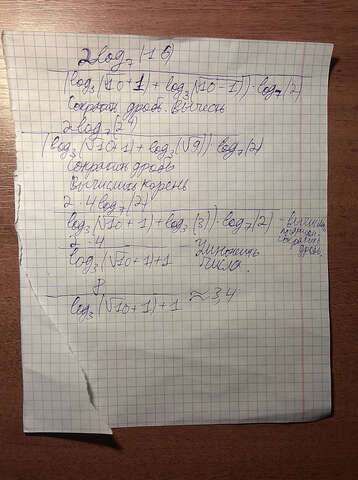 2log₇(-16)
(log₃(√10+1) + log₃(√10-1))·log₇(2)
Сократим дробь. вычесть
2log₇(2⁴)
(log₃(√10+1) + log₃(√9))·log₇(2)
Сократим дробь
Вычислим корень
2·4log₇(2)
log₃(√10+1)+log₃(3))·log₇(2) - Вычислим
Сократим
дробь.
2·4
log₃(√10+1)+1 Умножить
числа.
8
log₃(√10+1)+1 ≈3,4